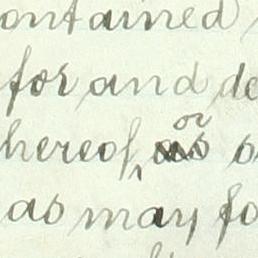 ontained
for and de
hereof, or as s
as may fo